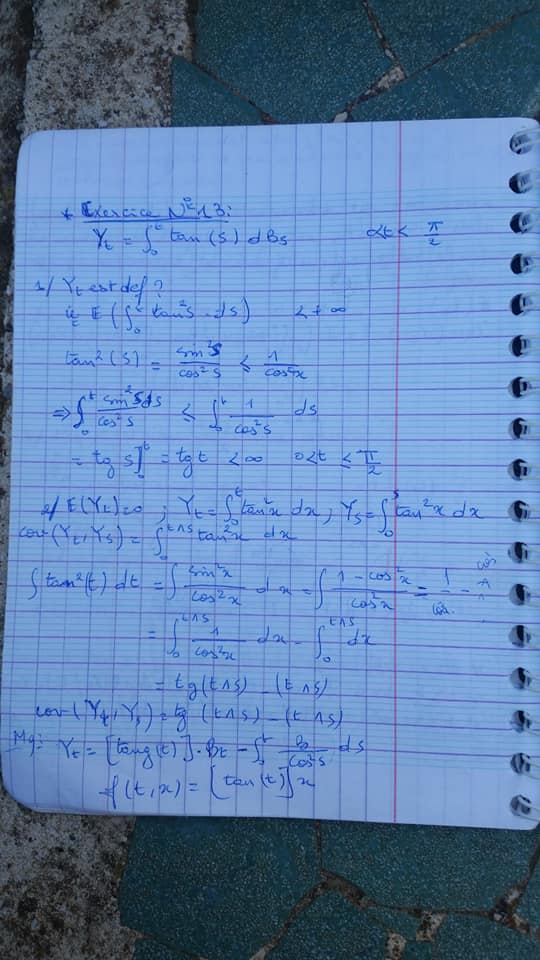 * Exercice N° 13:
Y_t = ∫_0^t tan(s) dB_s 0<t< π/2
1/ Y_t est def ?
ie E(∫_0^t tan²s · ds) < +∞
tan²(s) = sin²s/cos²s ≤ 1/cos²x
⇒ ∫_0^t sin²s ds/cos²s ≤ ∫_0^t 1/cos²s ds
= tg s]_0^t = tg t < ∞ 0<t ≤ π/2
2/ E(Y_t)=0 ; Y_t = ∫_0^t tan²x dx ; Y_s = ∫_0^s tan²x dx
cov(Y_t, Y_s) = ∫_0^{t∧s} tan²x dx
∫ tan²(t) dt = ∫ sin²x/cos²x dx = ∫ (1 - cos²x)/cos²x = 1/cos -
= ∫_0^{t∧s} 1/cos²x dx - ∫_0^{t∧s} dx
= tg(t∧s) - (t∧s)
cov(Y_t, Y_s) = tg (t∧s) - (t∧s)
Mq: Y_t = [tang(t)] · B_t - ∫_0^t B_s/cos²s ds
f(t,x) = [tan(t)] x